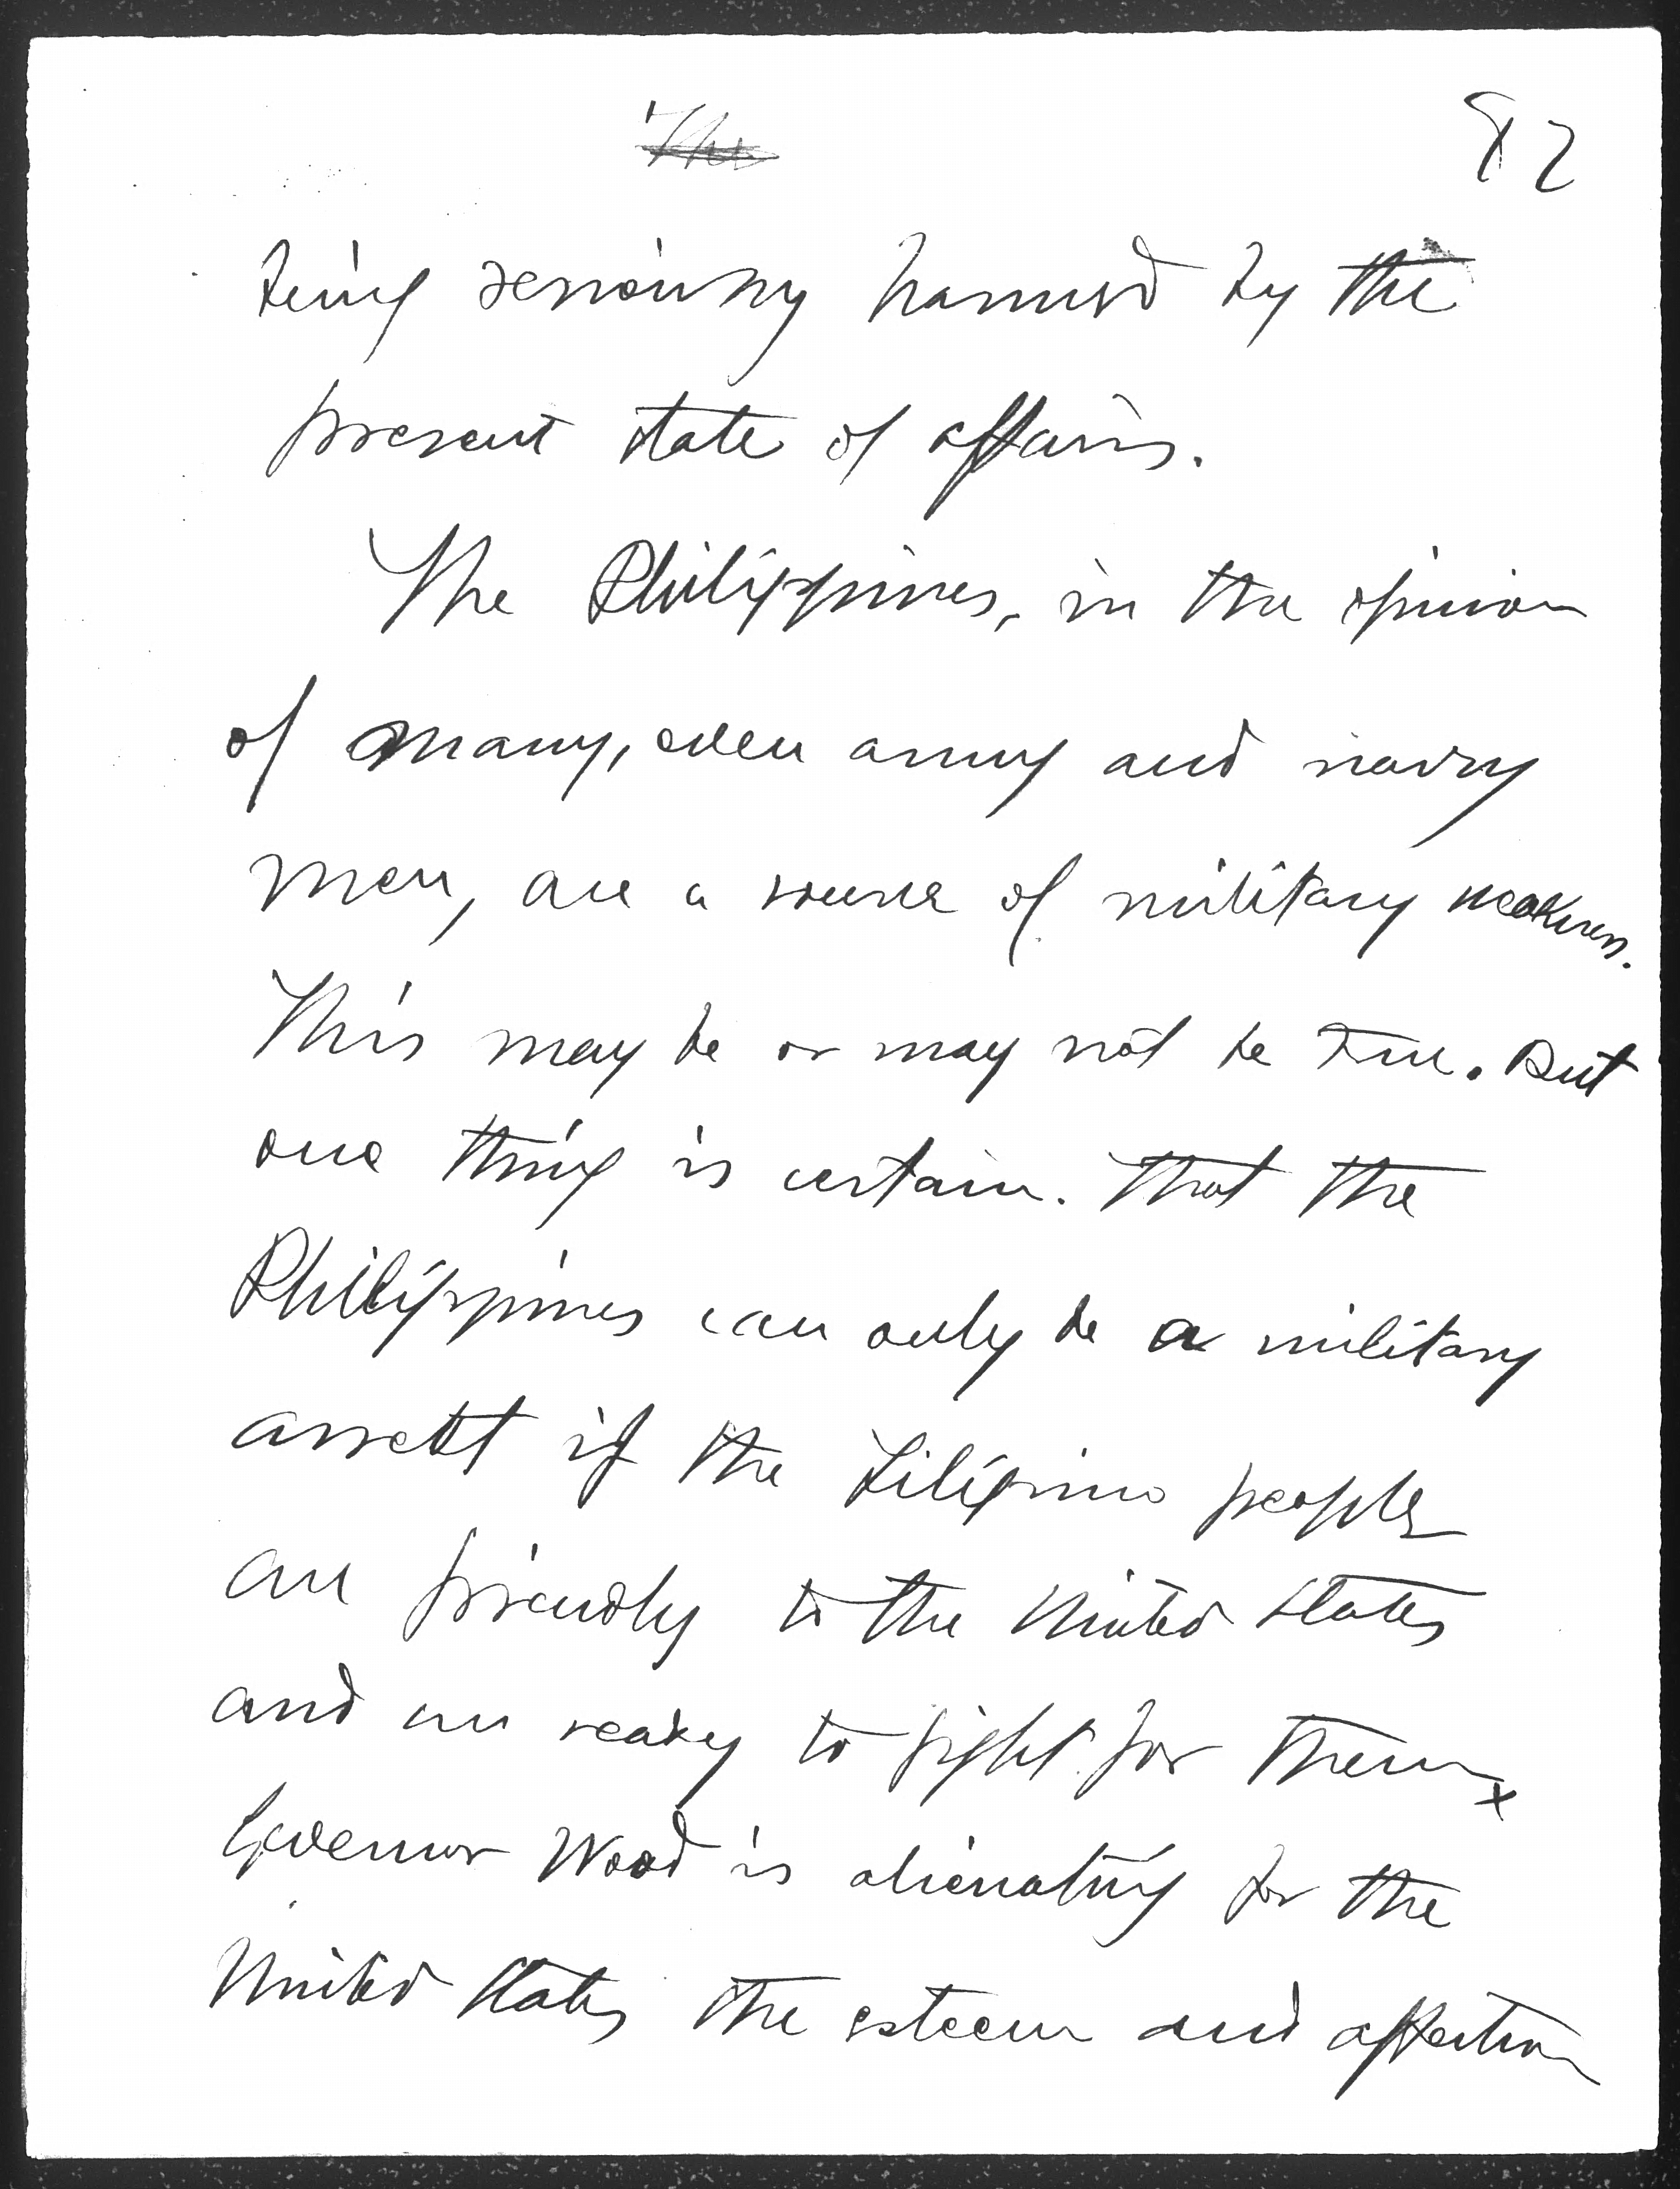 The
82
being seriously harmed by the
present state of affairs.
The Philippines, in the opinion
of many, even army and navy
men, are a source of military weakness.
This may be or may not be true. But
one thing is certain. That the
Philippines can only be a military
assett if the Filipino people
are friendly to the United States
and are ready to fight for them x
Governor Wood is alienating for the
United States the esteem and affection